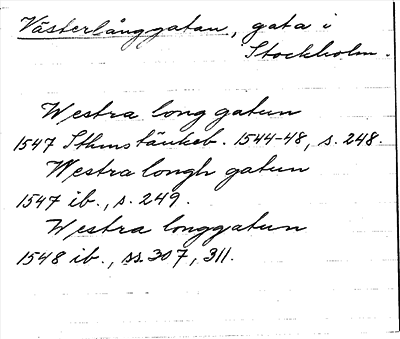 Västerlånggatan, gata i
Stockholm.
Westra long gatun
1547 Sthms tänkeb. 1544-48, s. 248.
Westra longh gatun
1547 ib., s. 249.
Westra longgatun
1548 ib., ss. 307, 311.